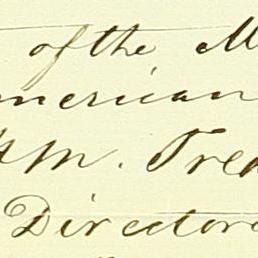 of the M
merican
Wm. Tre
Director